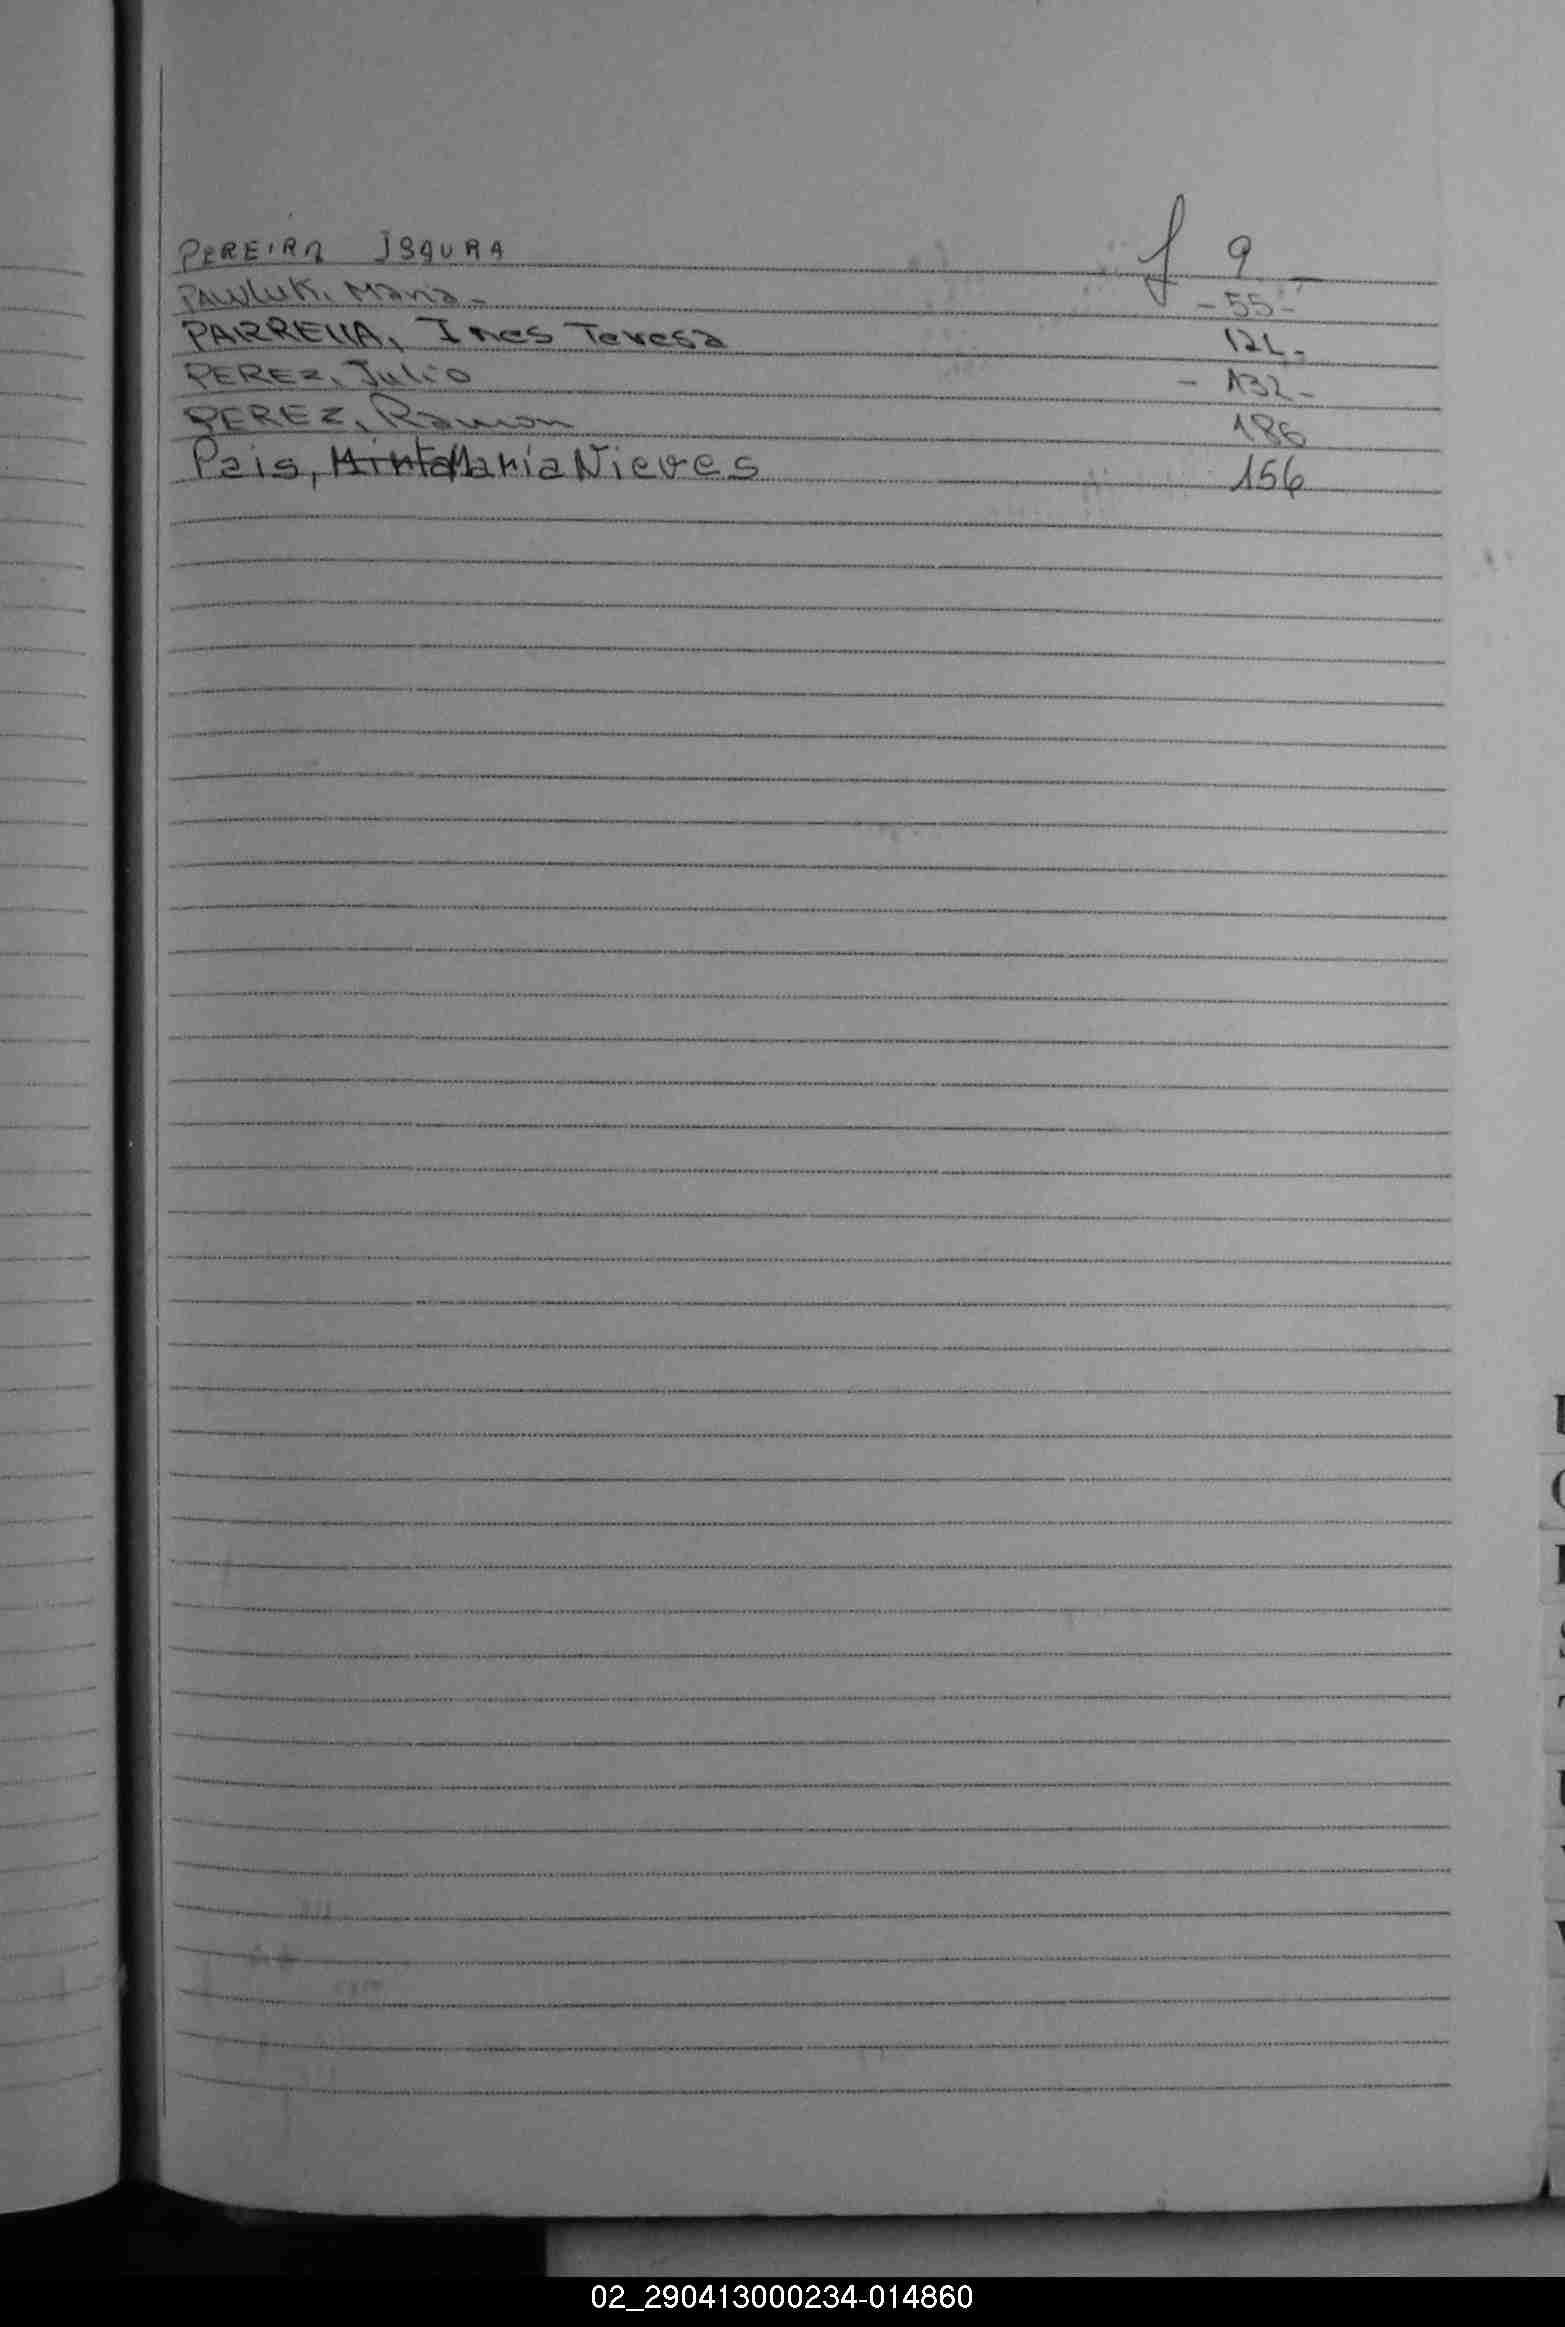 PEREIRA ISAURA f 9 -
PAWLUK, Maria - - 55 -
PARRELLA, Ines Teresa 121 -
PEREZ, Julio - 132 -
PEREZ, Ramon 186
Pais, MirtaMaria Nieves 156
02_290413000234-014860